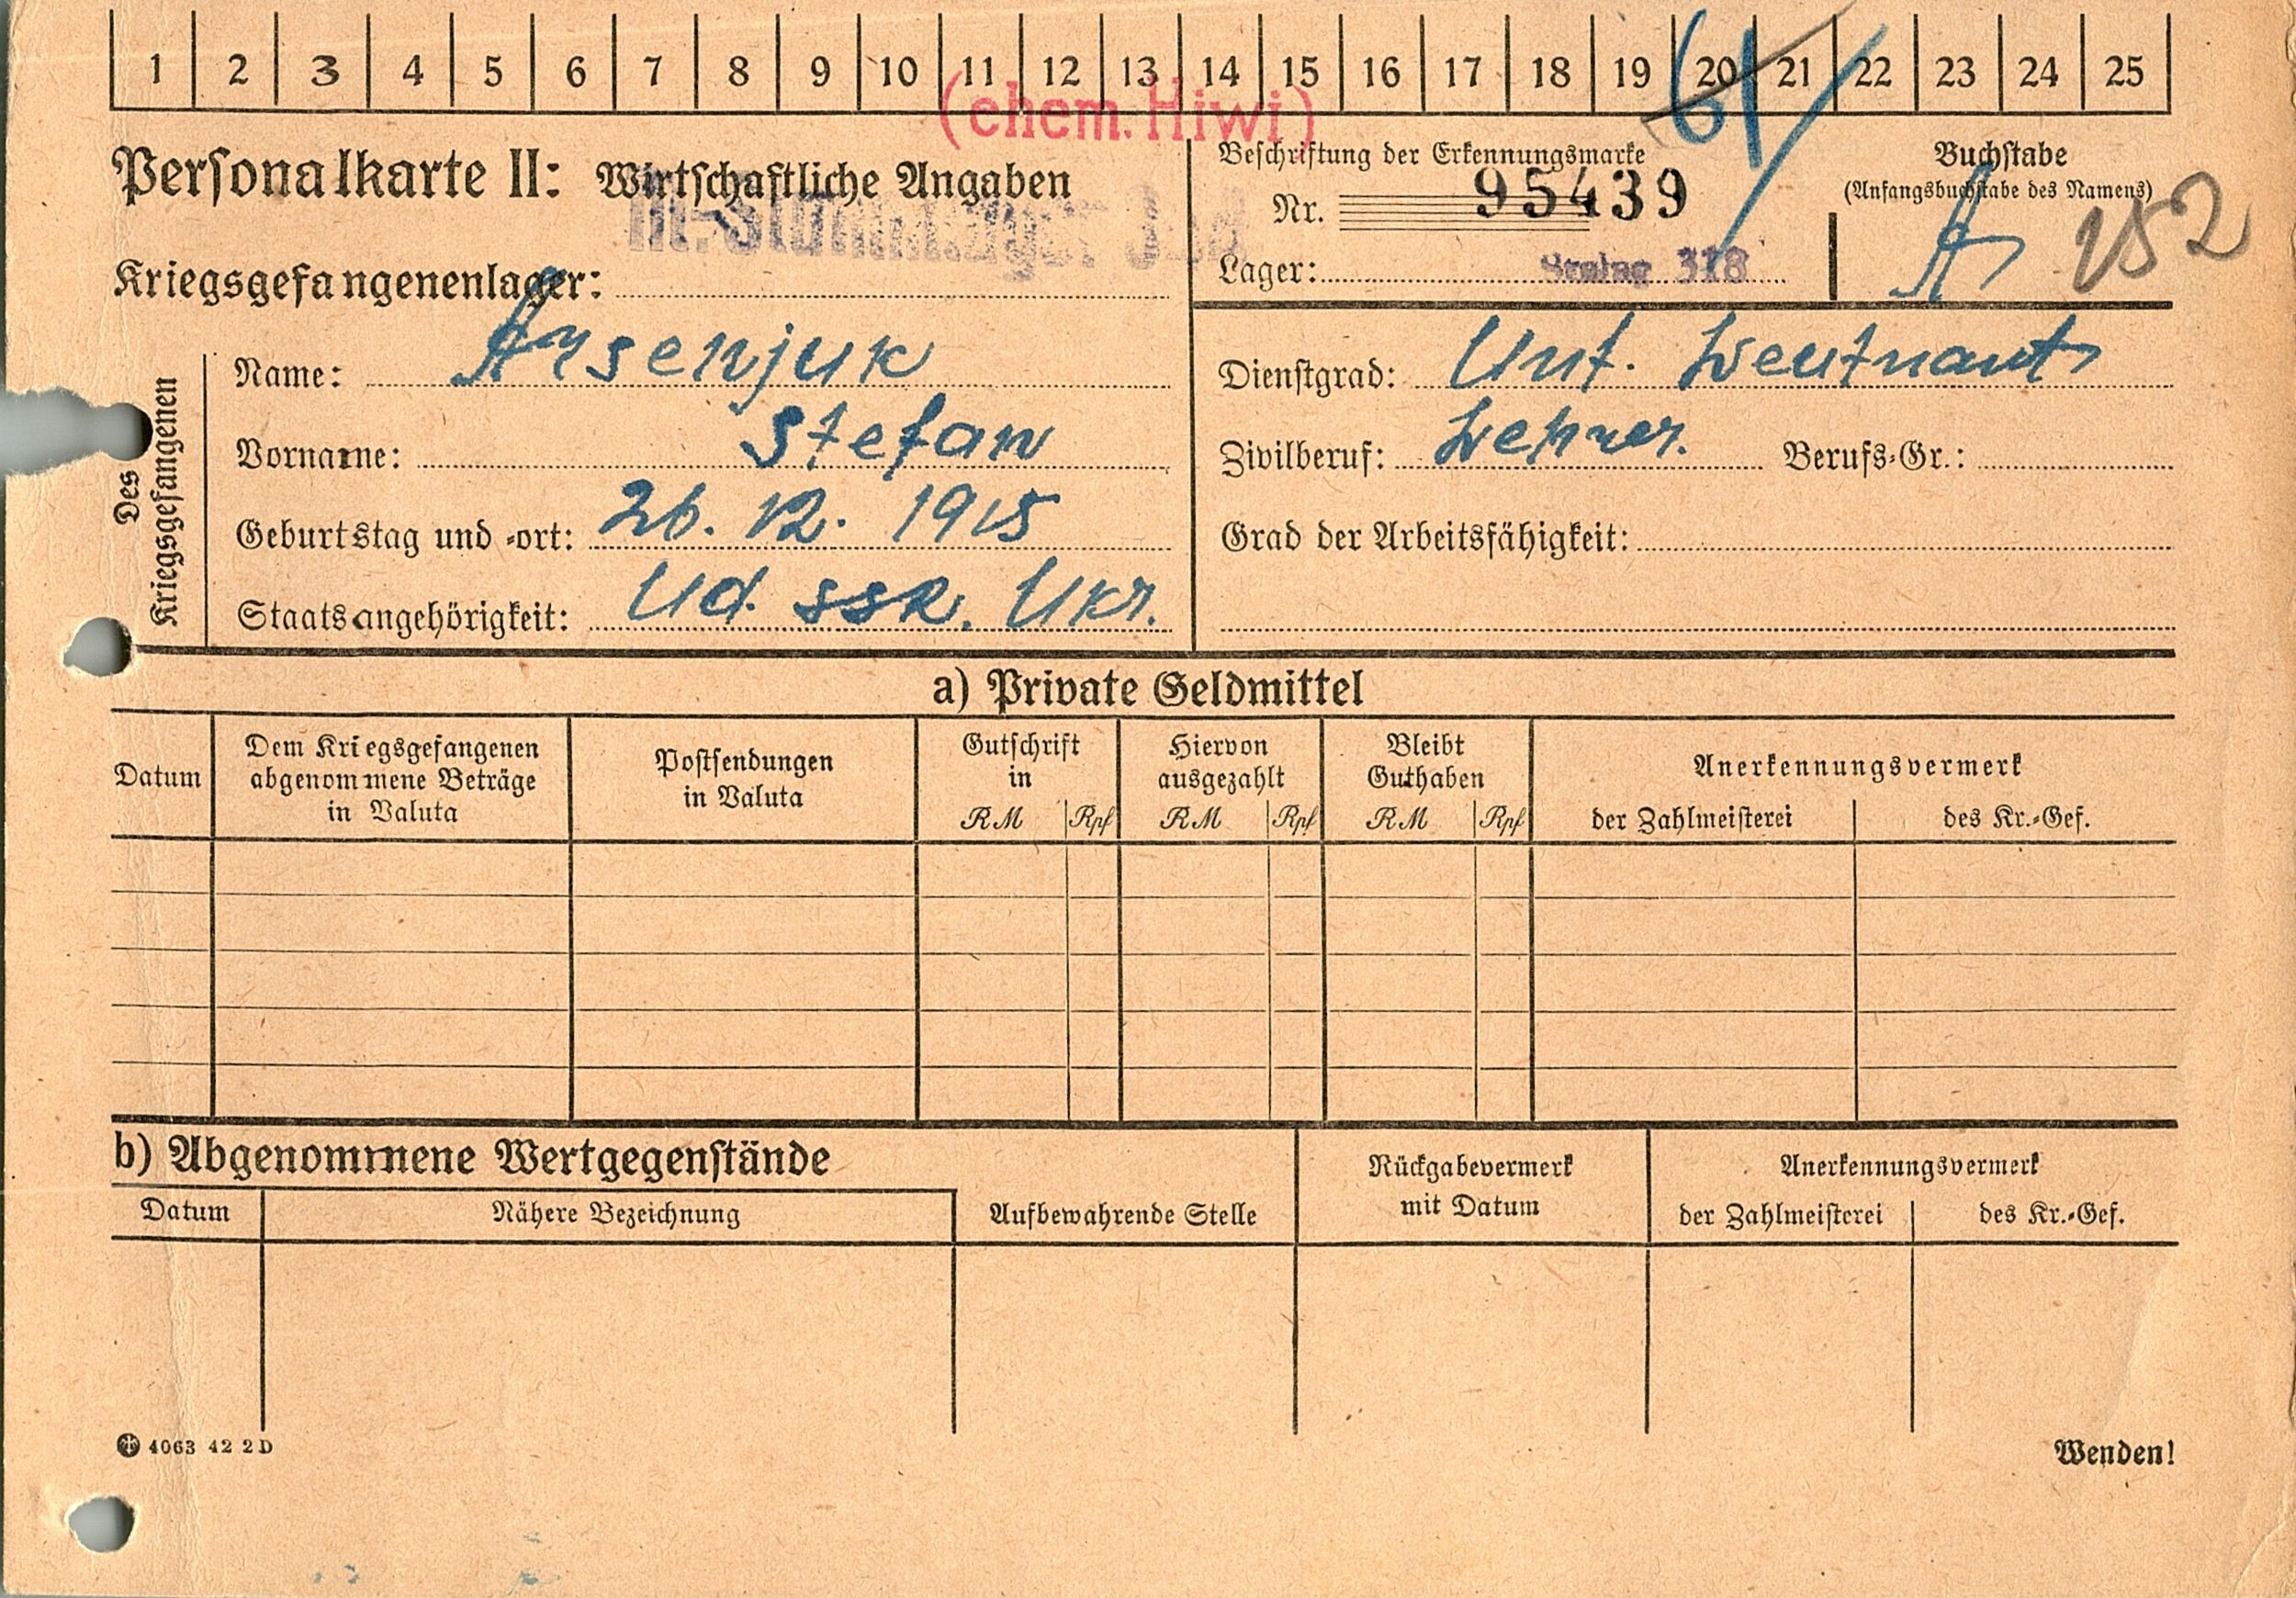 1 2 3 4 5 6 7 8 9 10 11 12 13 14 15 16 17 18 19 20 21 22 23 24 25
61
(ehem. Hiwi)
Personalkarte II: Wirtschaftliche Angaben
Kriegsgefangenenlager:
Beschriftung der Erkennungsmarke
Nr. 95439
Lager: Stalag 318
Buchstabe
(Anfangsbuchstabe des Namens)
A 152
Des Kriegsgefangenen
Name: Arsenjuk
Vorname: Stefan
Geburtstag und -ort: 26. 12. 1915
Staatsangehörigkeit: Ud. SSR. Ukr.
Dienstgrad: Unt. Leutnant
Zivilberuf: Lehrer. Berufs-Gr.:
Grad der Arbeitsfähigkeit:
a) Private Geldmittel
Datum
Dem Kriegsgefangenen
abgenommene Beträge
in Valuta
Postsendungen
in Valuta
Gutschrift
in
RM Rpf
Hiervon
ausgezahlt
RM Rpf
Bleibt
Guthaben
RM Rpf
Anerkennungsvermerk
der Zahlmeisterei des Kr.-Gef.
b) Abgenommene Wertgegenstände
Datum Nähere Bezeichnung
Aufbewahrende Stelle
Rückgabevermerk
mit Datum
Anerkennungsvermerk
der Zahlmeisterei des Kr.-Gef.
4063 42 2 D
Wenden!